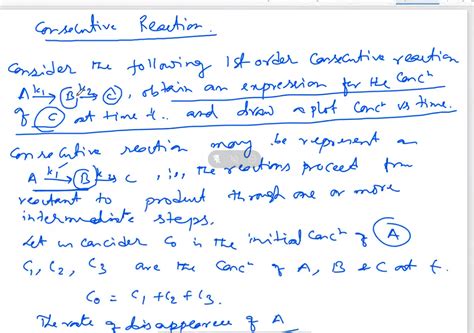 Consecutive Reaction.
Consider the following 1st order consecutive reaction
A k1→ B k2→ C, obtain an expression for the Concn
of C at time t. and draw a plot Concn vs time.
Consecutive reaction may be represent as
A k1→ B k2→ C, i.e., the reactions proceed from
reactant to product through one or more
intermediate steps.
Let us concider C0 is the initial Concn of A
C1, C2, C3 are the Concn of A, B & C at t.
C0 = C1 + C2 + C3.
The rate of disappearence of A